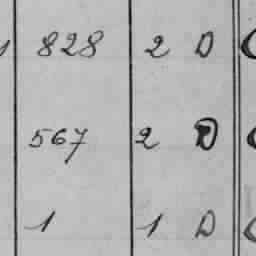 828 2 D
567 2 D
1 1 D